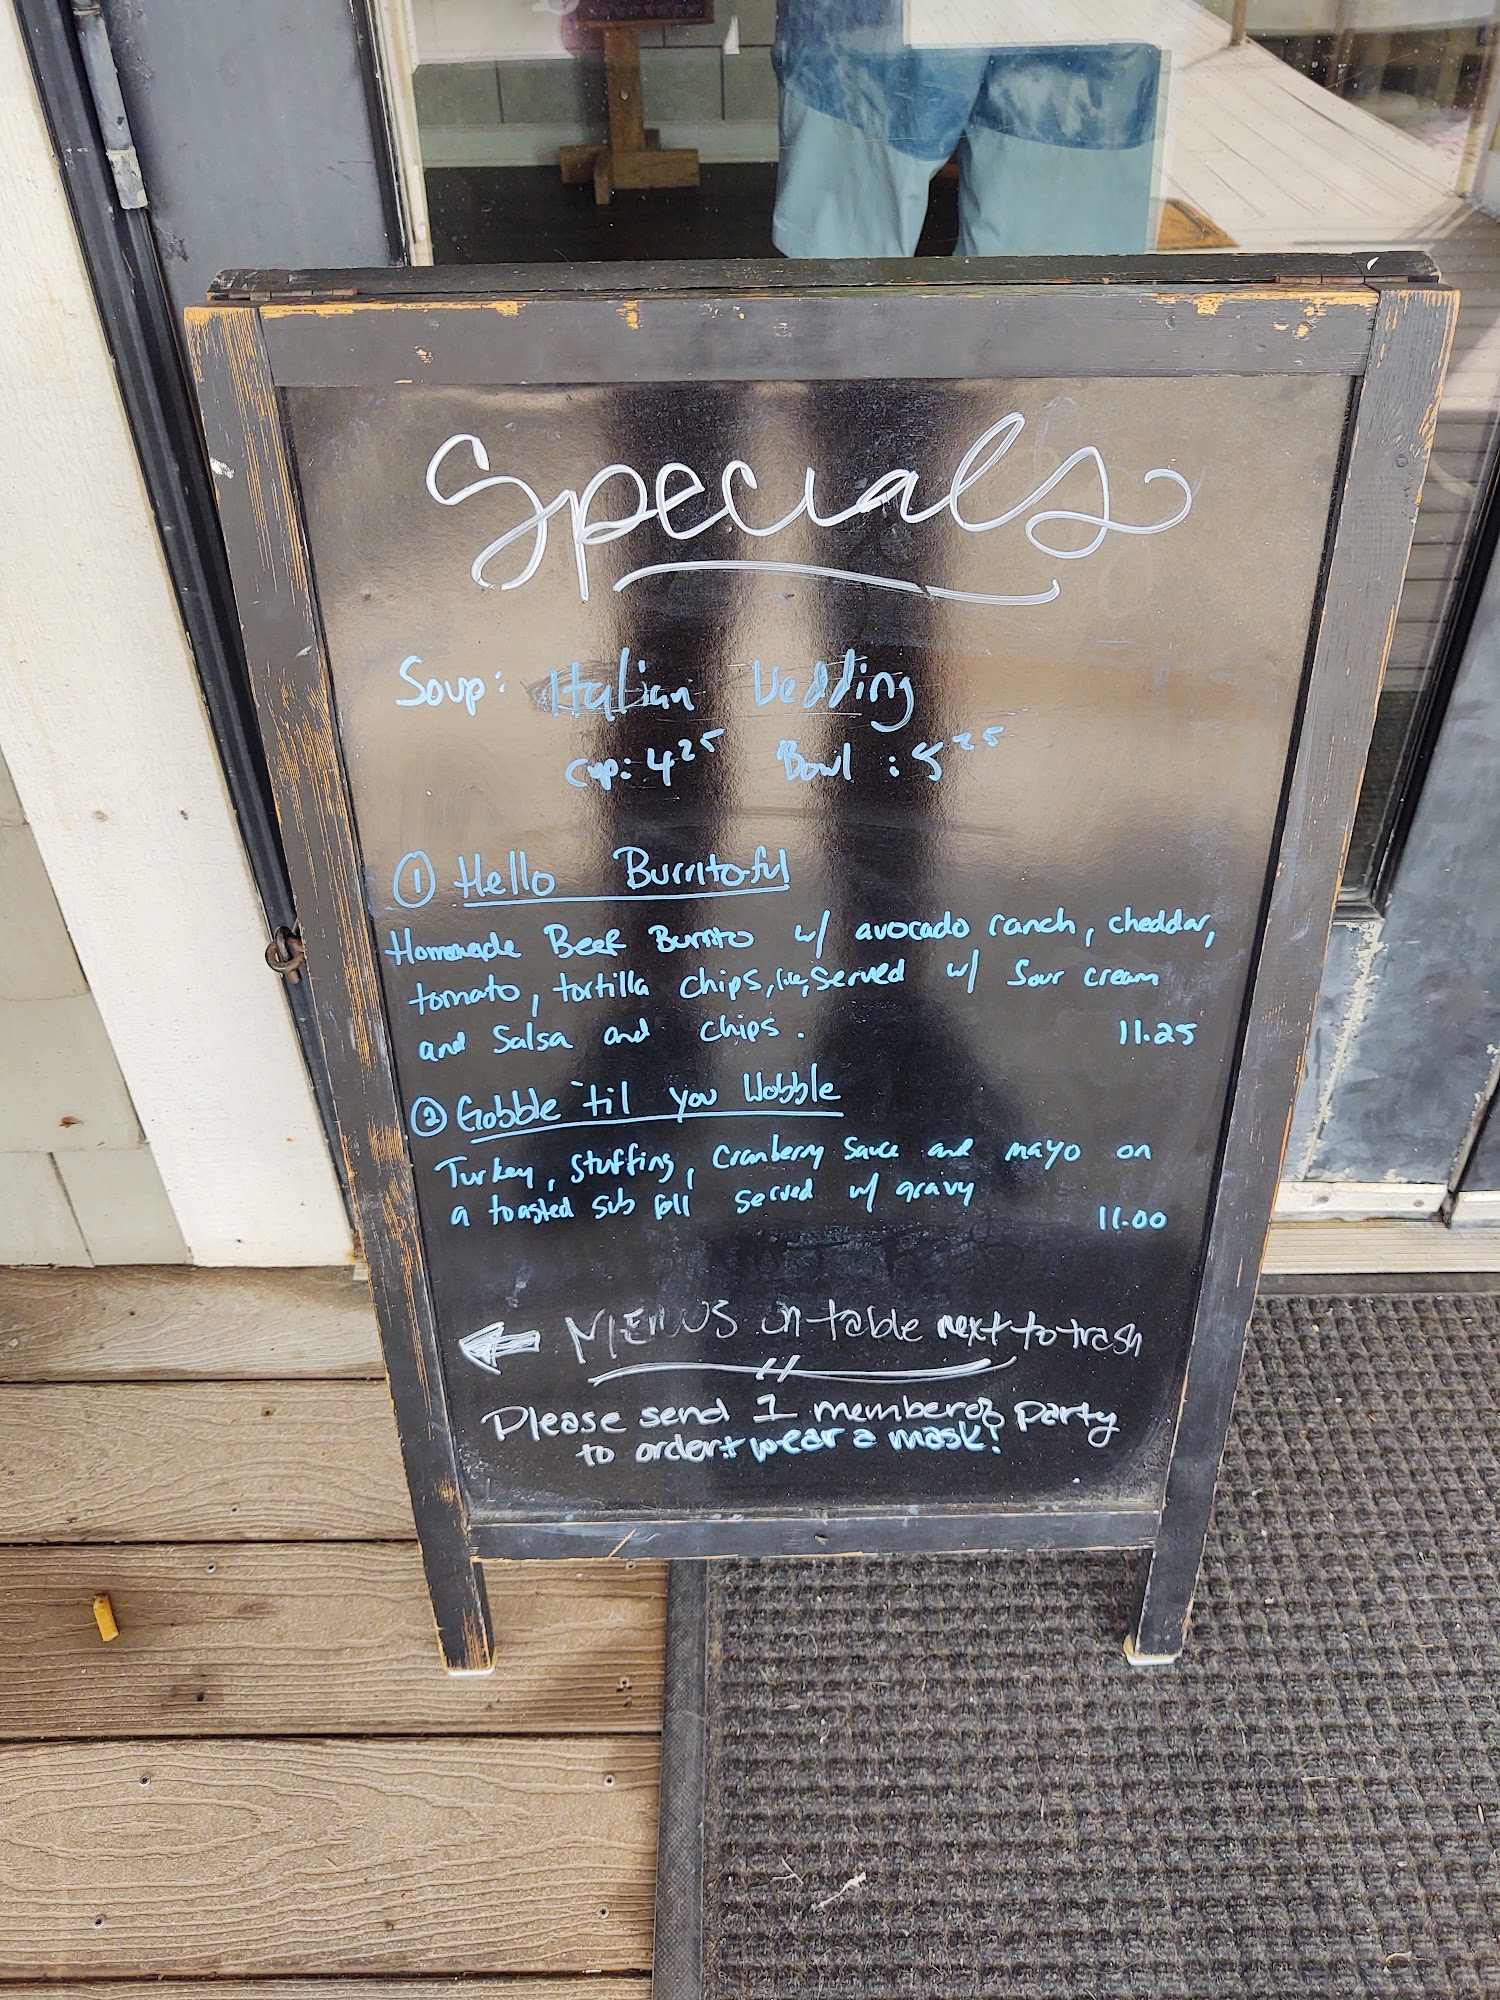 Specials
Soup: Italian Wedding
Cup: 4²⁵ Bowl: 5²⁵
① Hello Burrito-ful
Homemade Beef Burrito w/ avocado ranch, cheddar,
tomato, tortilla chips, served w/ Sour cream
and Salsa and chips. 11.25
② Gobble 'til you Wobble
Turkey, stuffing, cranberry sauce and mayo on
a toasted sub roll served w/ gravy
11.00
MENUS on table next to trash
Please send 1 member of party
to order + wear a mask!